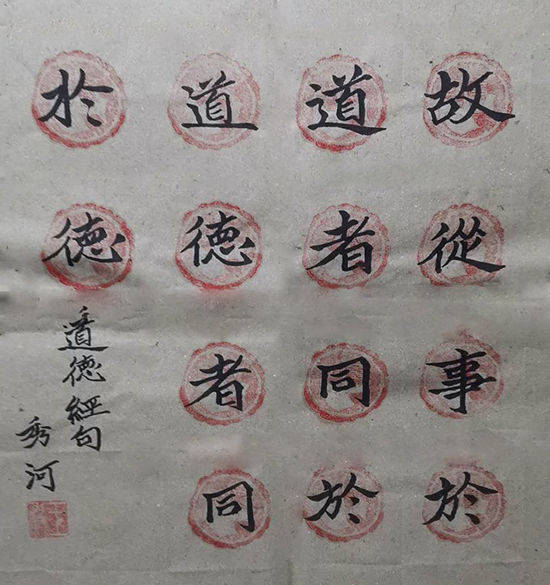 故從事於
道者同於
道德者同
於德
道德經句
秀河